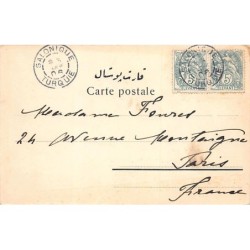 SALONIQUE
TURQUIE
5 5
قارت پوستال
Carte postale
Madame Foures
24 Avenue Montaigne
Paris
France